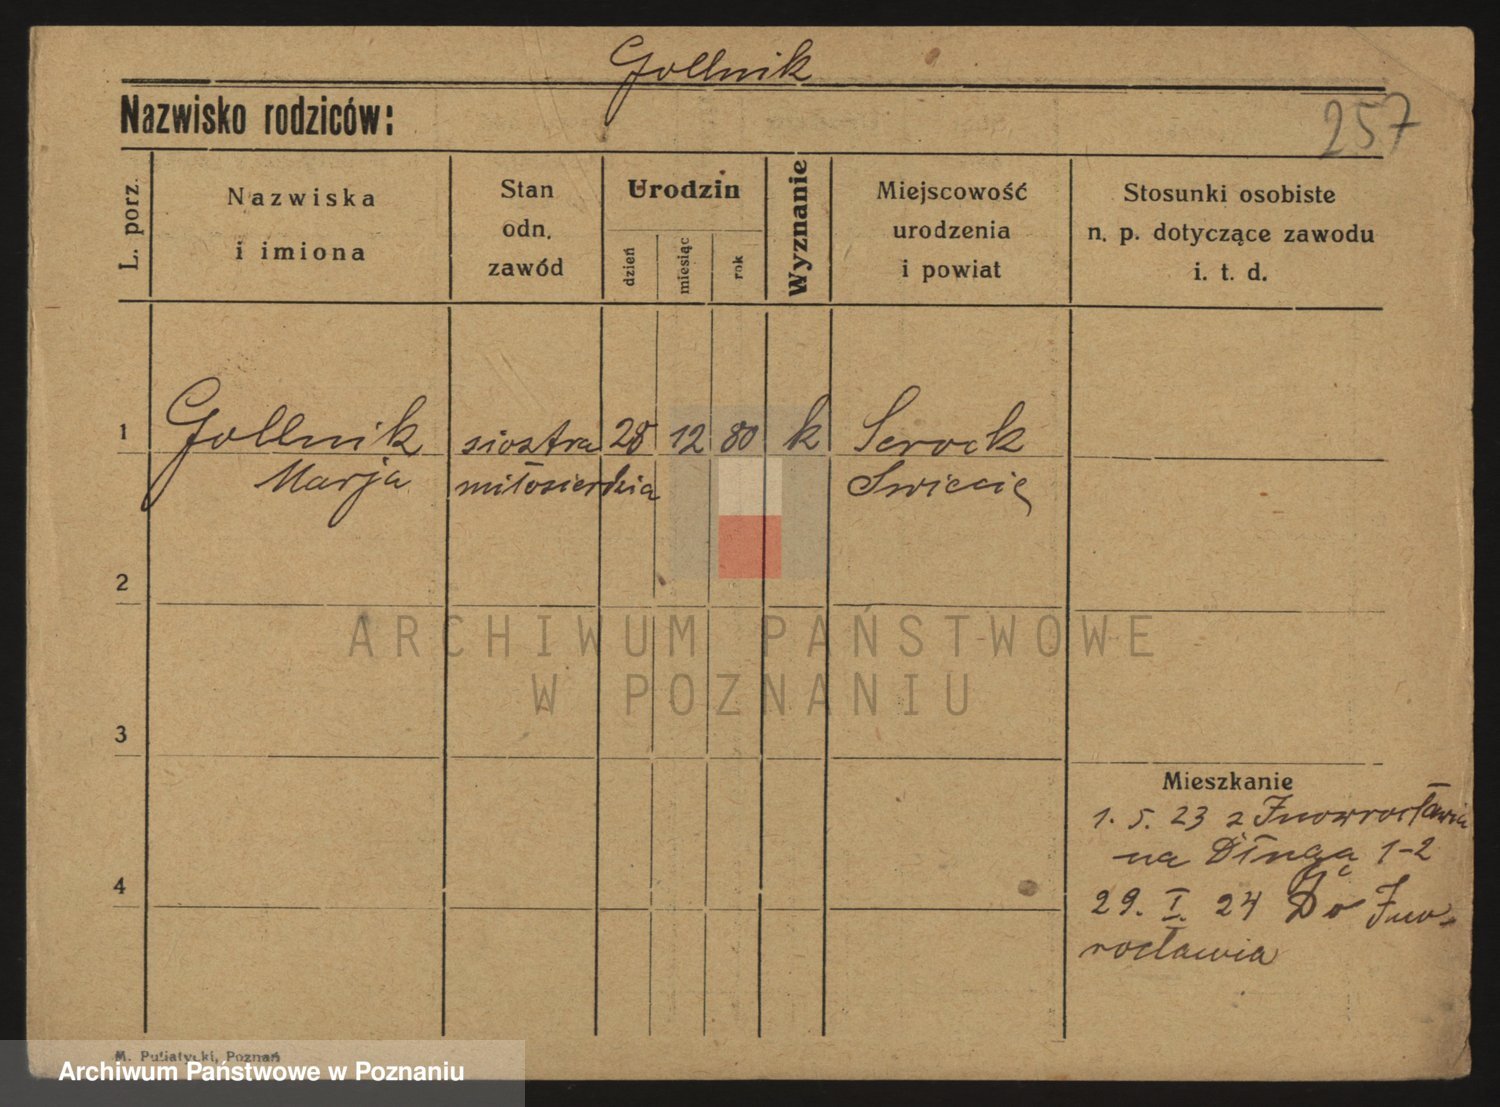 Gollnik
Nazwisko rodziców:
257
L. porz.
Nazwiska
i imiona
Stan
odn.
zawód
Urodzin
dzień
miesiąc
rok
Wyznanie
Miejscowość
urodzenia
i powiat
Stosunki osobiste
n. p. dotyczące zawodu
i. t. d.
1
Gollnik siostra 28 12 80 k Serock
Marja miłosierdzia Swiecie
2
ARCHIWUM PAŃSTWOWE
W POZNANIU
3
Mieszkanie
1. 5. 23 z Inowrocławia
na Długą 1-2
4
29. I. 24 Do Inow-
rocławia
M. Putiatycki, Poznań
Archiwum Państwowe w Poznaniu